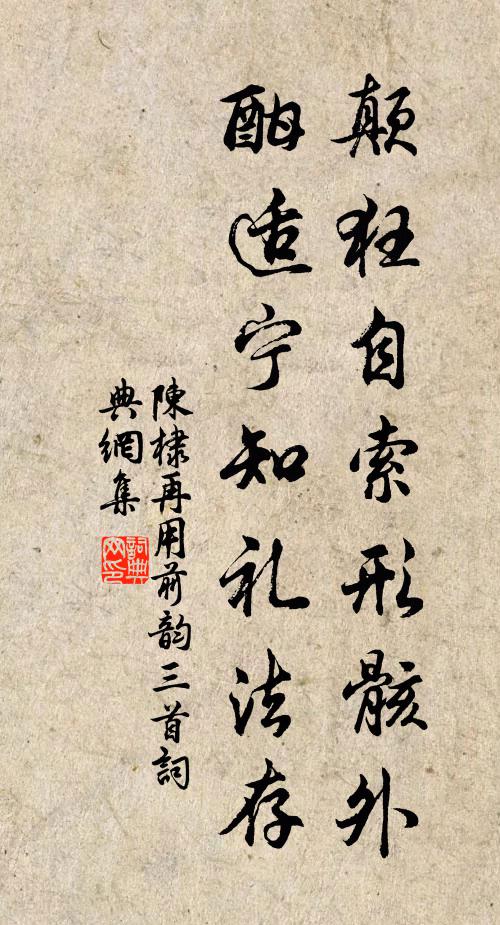 颠狂自索形骸外
酣适宁知礼法存
陳棣再用前韵三首詞
典網集
詞典网印